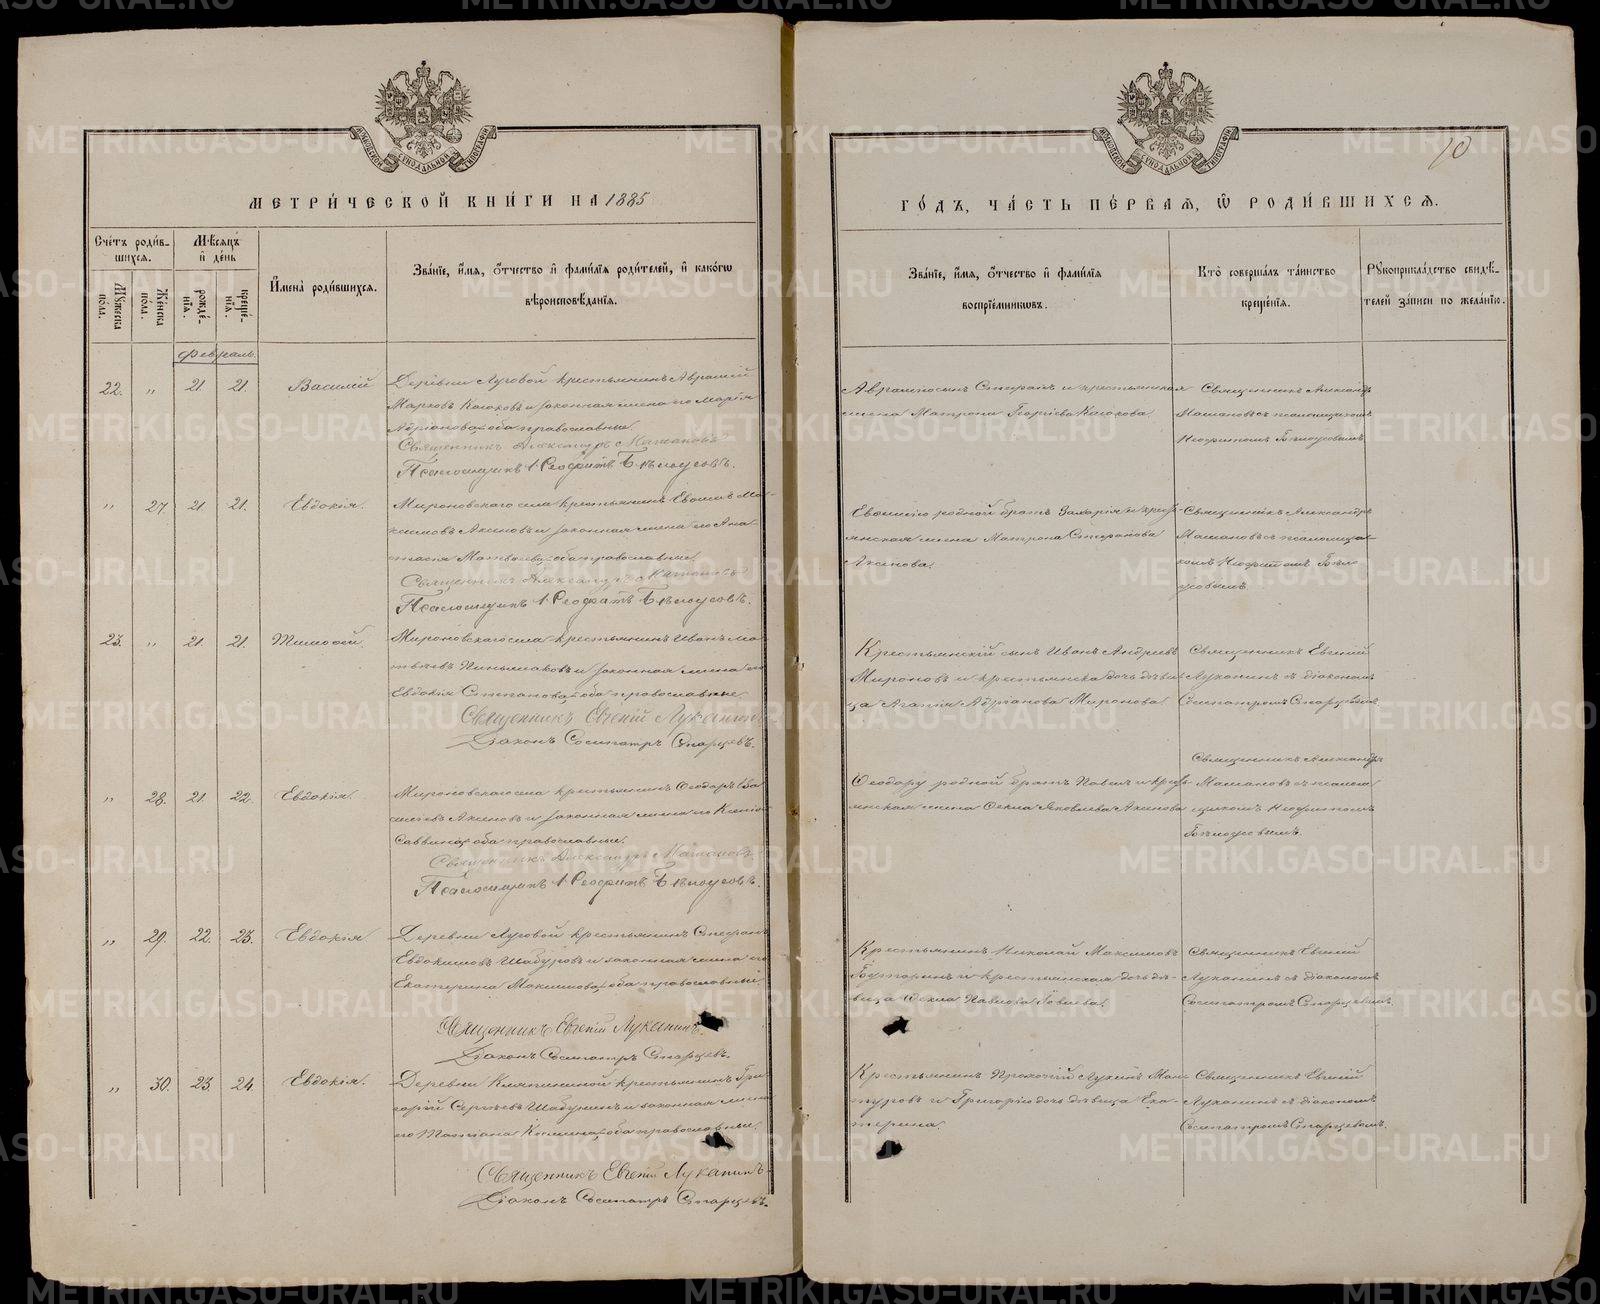 МЕТРИ́ЧЕСКОЙ КНИ́ГИ НА 1885
Сче́тъ роди́в-
шихся.
Мѣ́сяцъ
и де́нь
Мꙋжеска по́ла.
Же́нска по́ла.
рожде́-
нїя.
креще́-
нїя.
И҆мена̀ роди́вшихся.
Зва́нїе, и҆́мя, ѻ҆́тчество и҆ фами́лїя роди́телей, и҆ како́гѡ
вѣроисповѣ́данїя.
Февраль.
22. " 21. 21. Василій
Деревни Луговой крестьянинъ Аврамій
Марковъ Касоковъ и законная жена его Марія
Адріановна, оба православные.
Священникъ Александръ Матановъ
Псаломщикъ Неофитъ Бѣлоусовъ.
" 27. 21. 21. Евдокія.
Мироновскаго села крестьянинъ
Аксеновъ и законная жена его Ана-
стасія Матвѣева, оба православные
Священникъ Александръ Матановъ
Псаломщикъ Неофитъ Бѣлоусовъ.
23. " 21. 21. Тимоѳей.
Мироновскаго села крестьянинъ Иванъ Мат-
вѣевъ и законная жена его
Евдокія Степанова, оба православные
Священникъ Евгеній Луканинъ
Діаконъ Сосипатръ Старцевъ.
" 28. 21. 22. Евдокія.
Мироновскаго села крестьянинъ Ѳеодоръ
Аксеновъ и законная жена его
Саввина, оба православные.
Священникъ Александръ Матановъ
Псаломщикъ Неофитъ Бѣлоусовъ.
" 29. 22. 23. Евдокія
Деревни Луговой крестьянинъ Стефанъ
Евдокимовъ Шабуровъ и законная жена его
Екатерина Максимова, оба православные.
Священникъ Евгеній Луканинъ.
Діаконъ Сосипатръ Старцевъ.
" 30. 23 24 Евдокія.
Деревни крестьянинъ Гри-
горій Сергѣевъ Шабунинъ и законная жена
его Татіана Косьмина, оба православные.
Священникъ Евгеній Луканинъ
Діаконъ Сосипатръ Старцевъ.
10
ГО́ДЪ, ЧА́СТЬ ПЕ́РВАЯ, Ѽ РОДИ́ВШИХСЯ.
Зва́нїе, и҆́мя, ѻ҆́тчество и҆ фами́лїя
воспрїе́мникѡвъ.
Кто̀ соверша́лъ та́инство
креще́нїя.
Рꙋкоприкла́дство свидѣ́-
телей за́писи по жела́нїю.
Аврамія сынъ Стефанъ и крестьянская
жена Матрона Георгіева Касокова.
Священникъ Александръ
Матановъ съ псаломщикомъ
Неофитомъ Бѣлоусовымъ
родной братъ Захарія и кресть-
янская жена Матрона Стефанова
Аксенова.
Священникъ Александръ
Матановъ съ псаломщи-
комъ Неофитомъ Бѣло-
усовымъ
Крестьянскій сынъ Иванъ Андреевъ
Мироновъ и крестьянска дочь дѣви-
ца Агаѳія Адріанова Миронова
Священникъ Евгеній
Луканинъ съ діакономъ
Сосипатромъ Старцевымъ.
Ѳеодору родной братъ Павелъ и кресть-
янская жена Ѳекла Яковлева Аксенова
Священникъ Александръ
Матановъ съ псалом-
щикомъ Неофитомъ
Бѣлоусовымъ.
Крестьянинъ Николай Максимовъ
и крестьянская дочь дѣ-
вица Ѳекла Павлова
Священникъ Евгеній
Луканинъ съ діакономъ
Сосипатромъ Старцевымъ.
Крестьянинъ Прокопій Лукинъ Ман-
туровъ и Григорія дочь дѣвица Ека-
терина.
Священникъ Евгеній
Луканинъ съ діакономъ
Сосипатромъ Старцевымъ.
METRIKI.GASO-URAL.RU